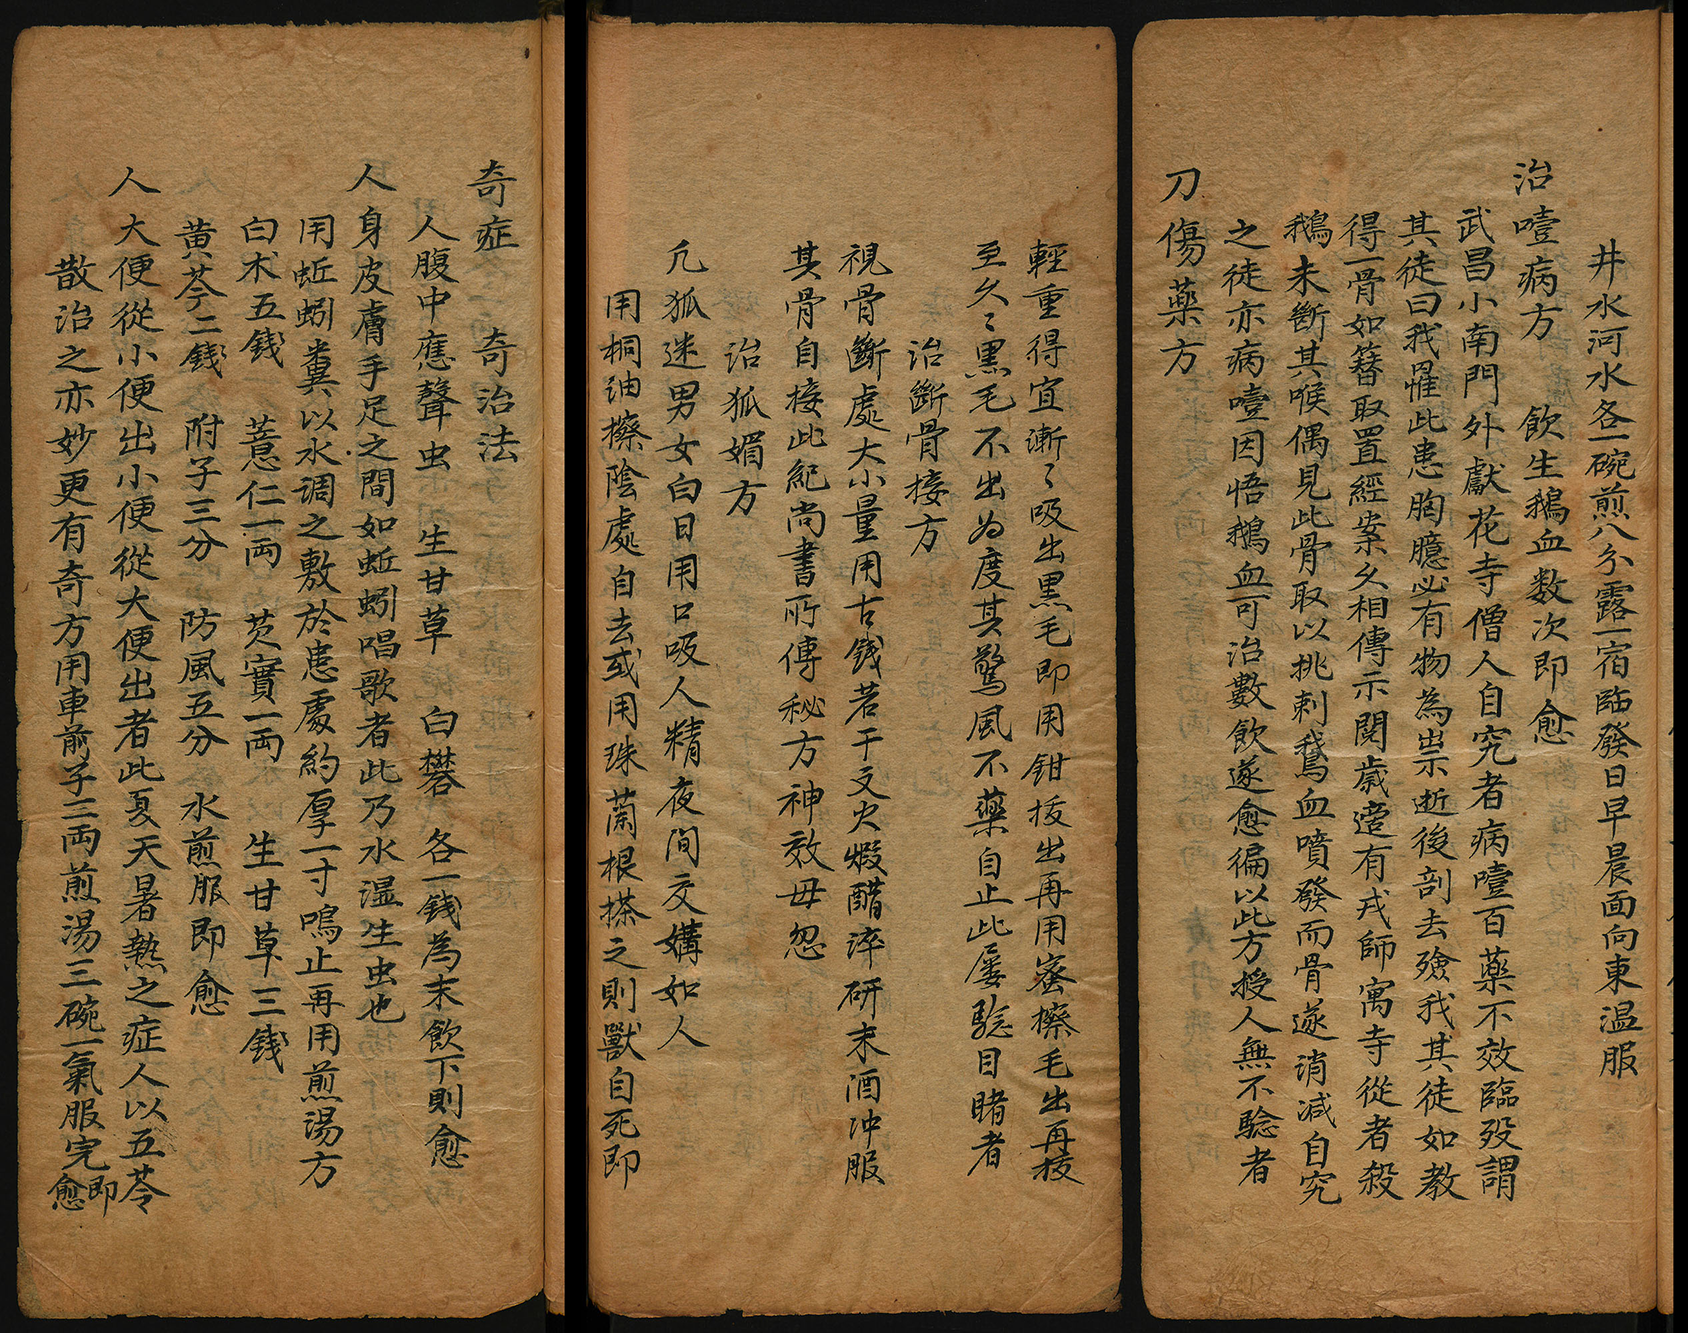 井水河水各一碗煎八分露一宿臨發日早晨面向東温服
治噎病方　飲生鵝血数次即愈
武昌小南門外獻花寺僧人自究者病噎百藥不效臨歿謂
其徒曰我罹此患胸臆必有物為祟逝後剖去殮我其徒如教
得一骨如簪取置經案久相傳示閱歲適有戎師寓寺從者殺
鵝未斷其喉偶見此骨取以挑刺鵝血噴發而骨遂消減自究
之徒亦病噎因悟鵝血可治數飲遂愈徧以此方授人無不驗者
刀傷藥方
輕重得宜漸〻吸出黒毛即用鉗拔出再用蜜擦毛出再拔
至久〻黒毛不出為度其驚風不藥自止此屢驗目睹者
治斷骨接方
視骨斷處大小量用古錢若干文火煅醋淬研末酒冲服
其骨自接此紀尚書所傳秘方神效毋忽
治狐媚方
凢狐迷男女白日用口吸人精夜间交媾如人
用桐油擦陰處自去或用珠蘭根搽之則獸自死即
奇症　奇治法
人腹中應聲虫　生甘草　白礬　各一錢為末飲下則愈
人身皮膚手足之間如蚯蚓唱歌者此乃水濕生虫也
用蚯蚓糞以水调之敷於患處約厚一寸鳴止再用煎湯方
白术五錢　薏仁一両　芡實一両　生甘草三錢
黄芩二錢　附子三分　防風五分　水煎服即愈
人大便從小便出小便從大便出者此夏天暑熱之症人以五苓
散治之亦妙更有奇方用車前子三両煎湯三碗一氣服完即愈